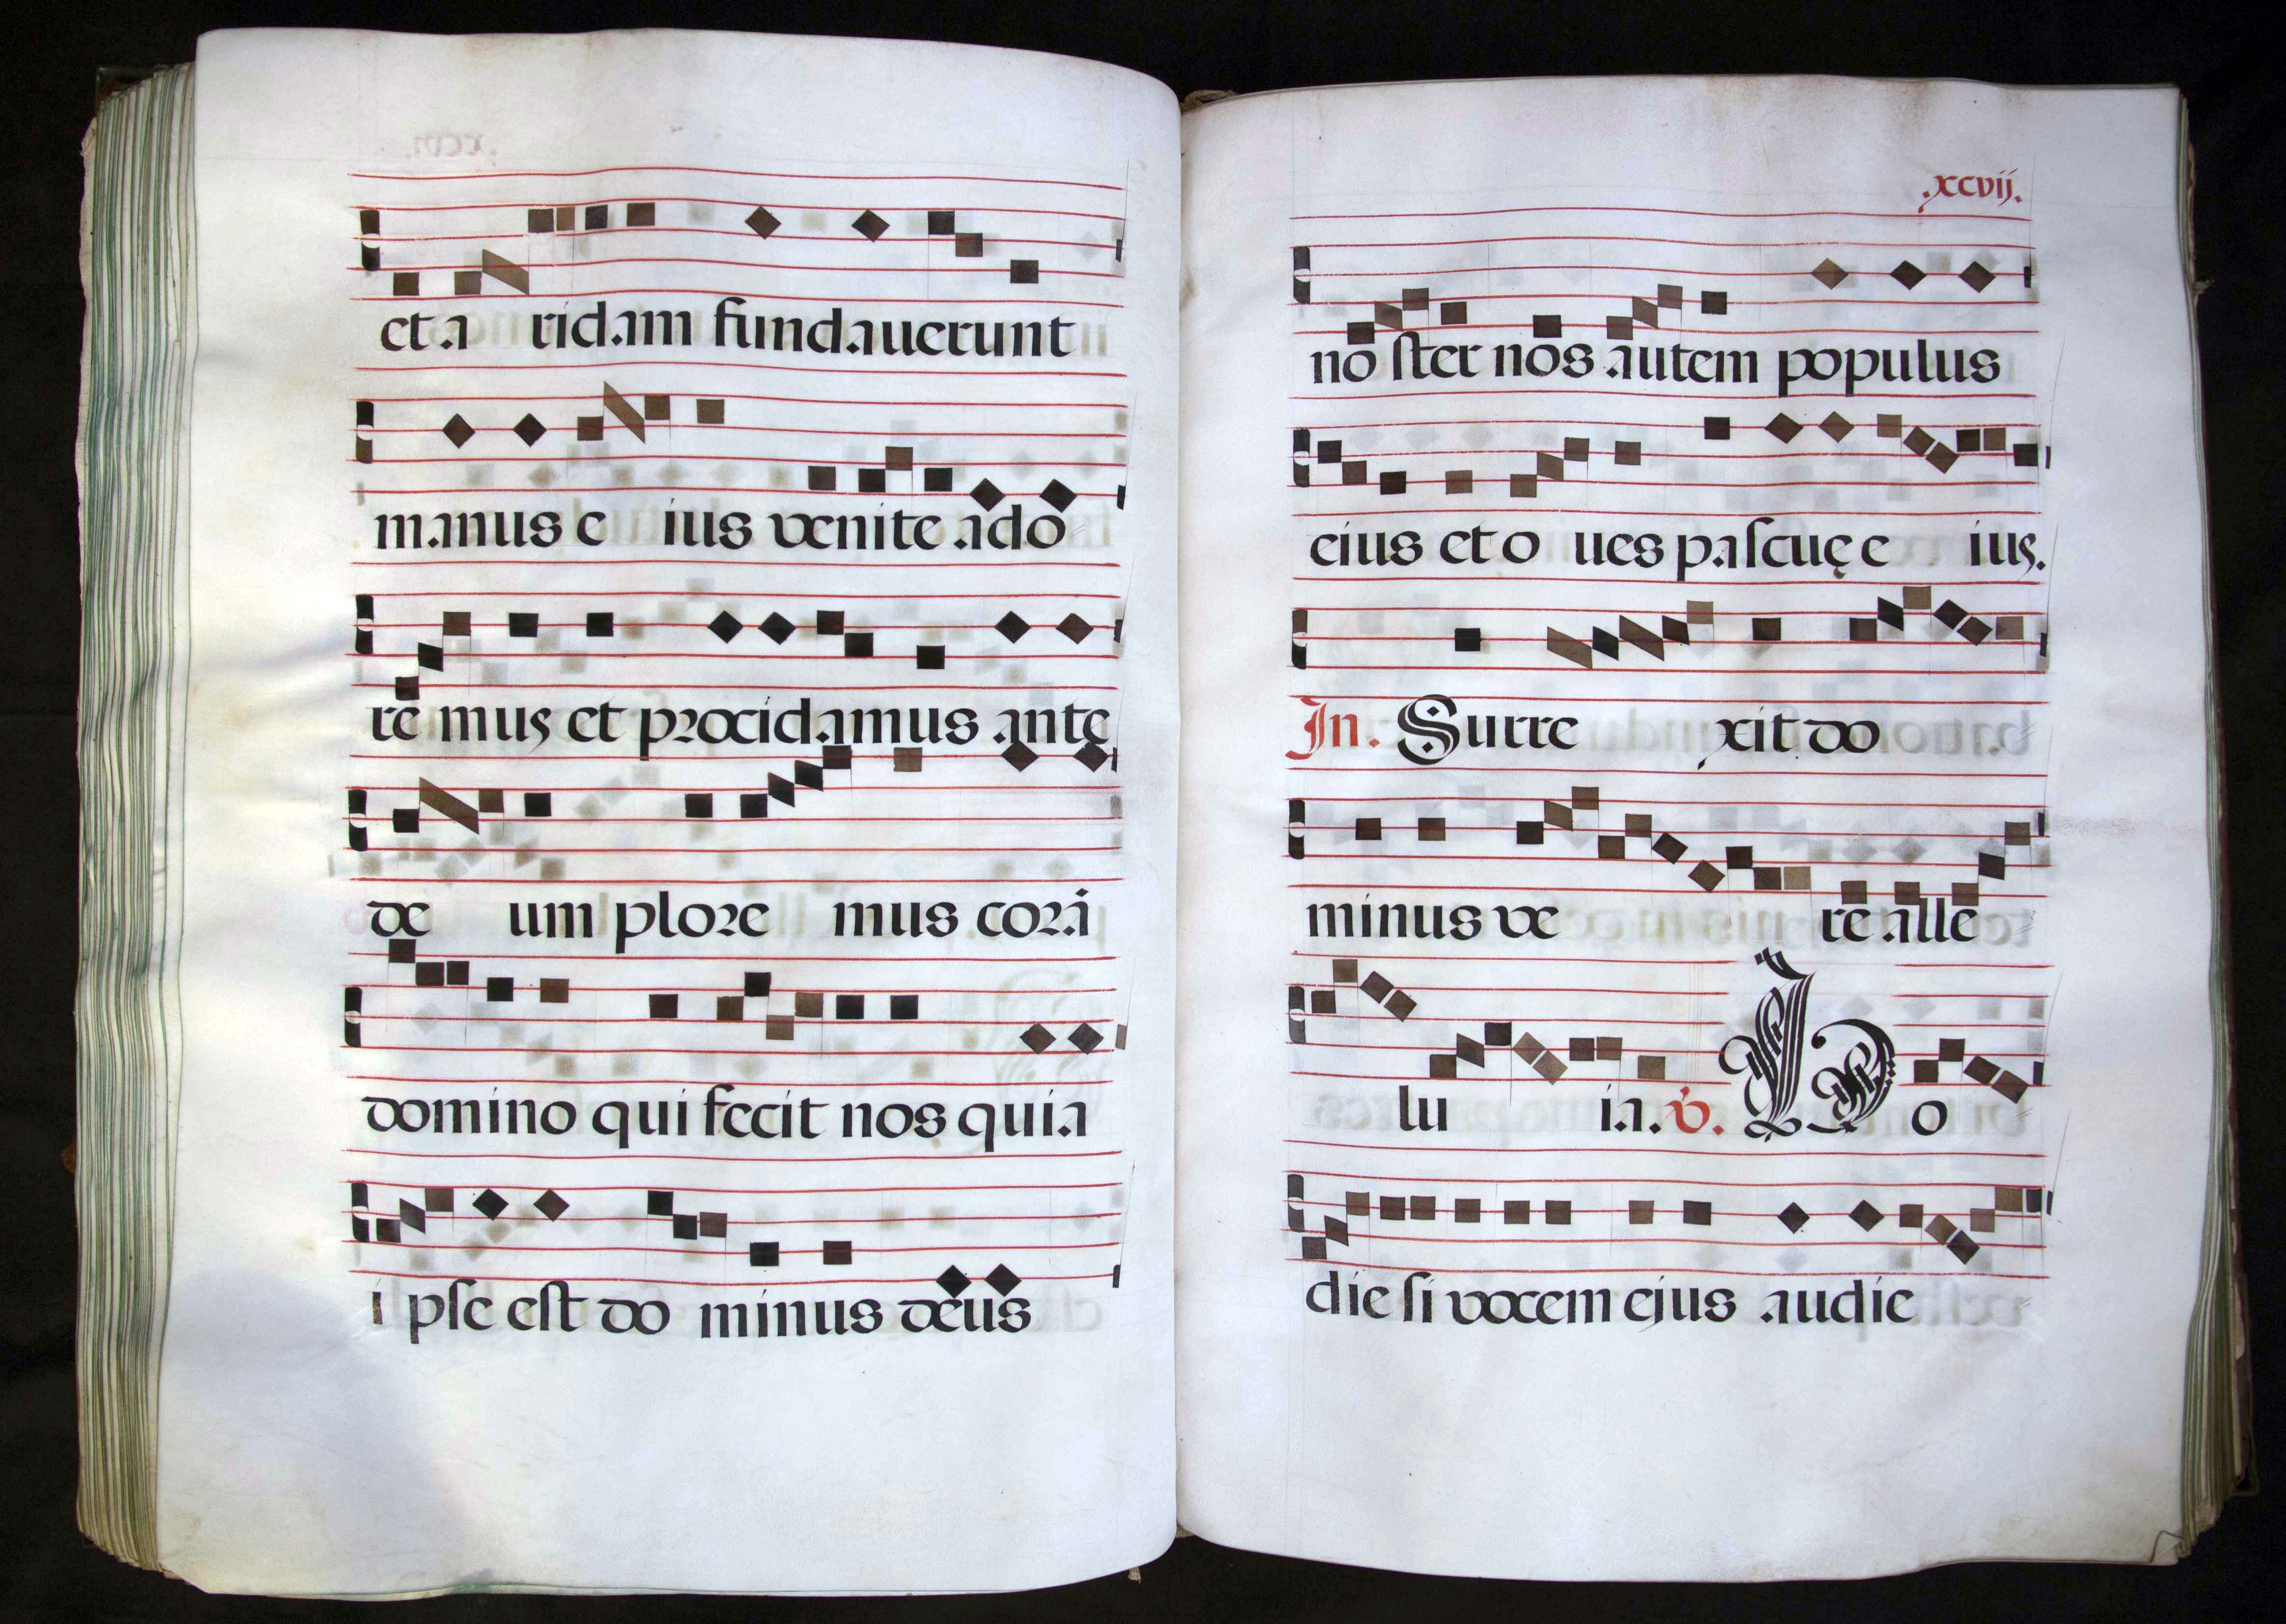 et a ridam fundauerunt
manus e ius venite ado
re mus et procidamus ante
de um plore mus corā
domino qui fecit nos quia
i pse est do minus deus
.xcvij.
no ster nos autem populus
eius et o ues pascuę e ius.
In. Surre xit do
minus ve re alle
lu ia. v. H o
die si vocem ejus audie